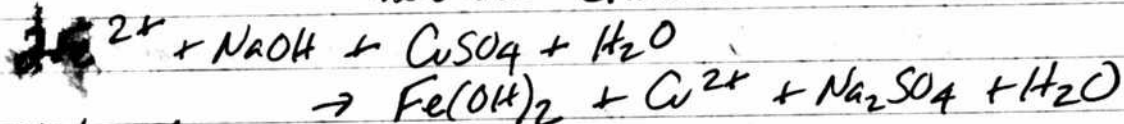 2+ + NaOH + CuSO4 + H2O
→ Fe(OH)2 + Cu2+ + Na2SO4 + H2O